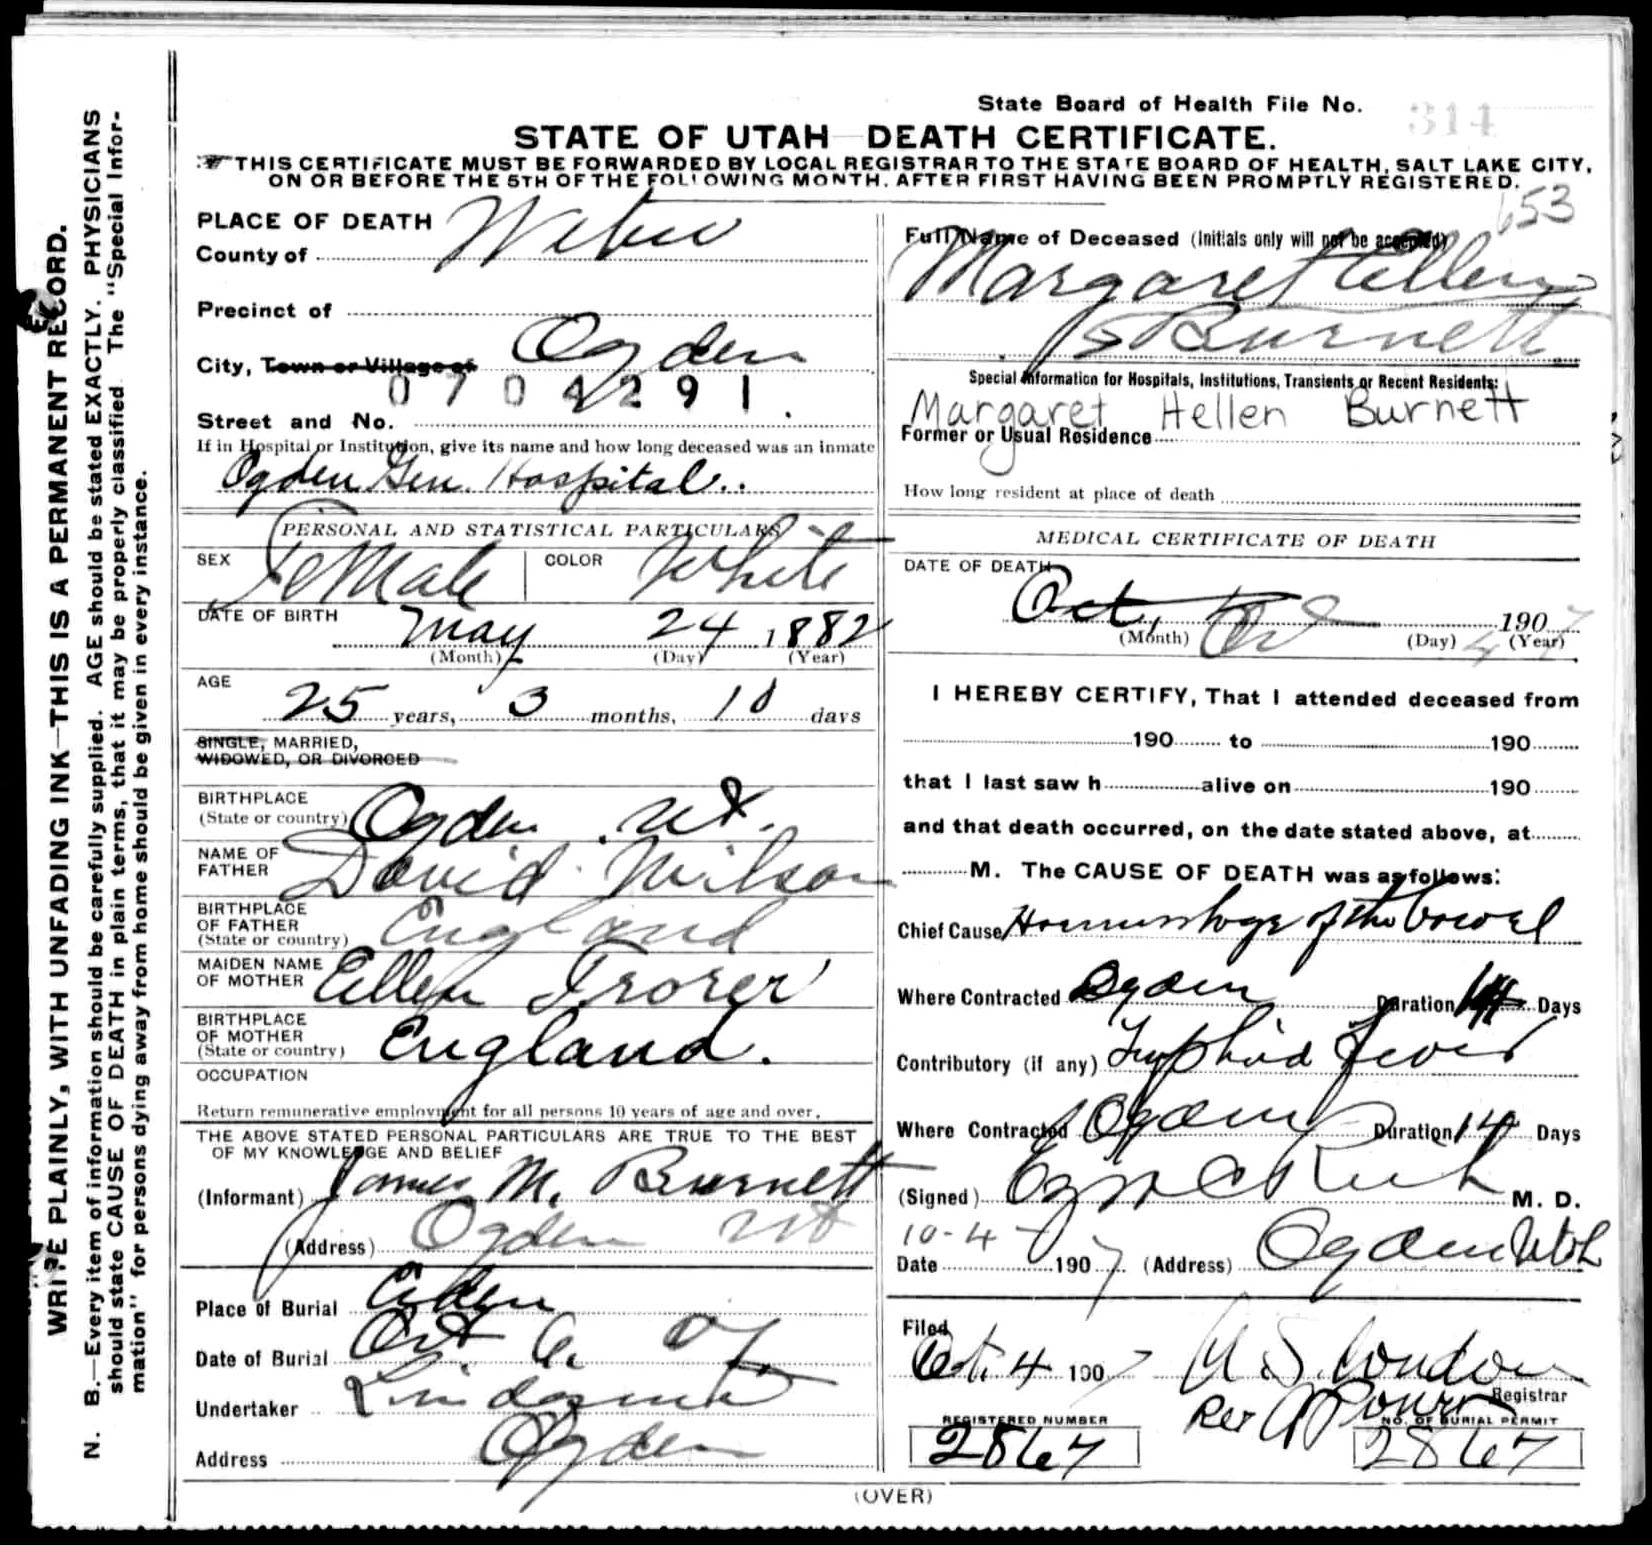 State Board of Health File No. 314
STATE OF UTAH—DEATH CERTIFICATE.
THIS CERTIFICATE MUST BE FORWARDED BY LOCAL REGISTRAR TO THE STATE BOARD OF HEALTH, SALT LAKE CITY,
ON OR BEFORE THE 5TH OF THE FOLLOWING MONTH, AFTER FIRST HAVING BEEN PROMPTLY REGISTERED.
WRITE PLAINLY, WITH UNFADING INK—THIS IS A PERMANENT RECORD.
N. B.—Every item of information should be carefully supplied. AGE should be stated EXACTLY. PHYSICIANS
should state CAUSE OF DEATH in plain terms, that it may be properly classified. The "Special Infor-
mation" for persons dying away from home should be given in every instance.
PLACE OF DEATH
County of Weber
Precinct of
City, Town or Village of Ogden
0704291
Street and No.
If in Hospital or Institution, give its name and how long deceased was an inmate
Ogden Gen. Hospital
PERSONAL AND STATISTICAL PARTICULARS
SEX FeMale COLOR White
DATE OF BIRTH May 24 1882
(Month) (Day) (Year)
AGE
25 years, 3 months, 10 days
SINGLE, MARRIED,
WIDOWED, OR DIVORCED
BIRTHPLACE
(State or country) Ogden Ut.
NAME OF
FATHER David Wilson
BIRTHPLACE
OF FATHER
(State or country) England
MAIDEN NAME
OF MOTHER Ellen
BIRTHPLACE
OF MOTHER
(State or country) England.
OCCUPATION
Return remunerative employment for all persons 10 years of age and over.
THE ABOVE STATED PERSONAL PARTICULARS ARE TRUE TO THE BEST
OF MY KNOWLEDGE AND BELIEF
(Informant) James M. Burnett
(Address) Ogden Ut
Place of Burial
Date of Burial Oct 6 07
Undertaker Lindquist
Address Ogden
653
Full Name of Deceased (Initials only will not be accepted)
Margaret Ellen
Burnett
Special Information for Hospitals, Institutions, Transients or Recent Residents:
Margaret Hellen Burnett
Former or Usual Residence
How long resident at place of death
MEDICAL CERTIFICATE OF DEATH
DATE OF DEATH
Oct, Oct 4 1907
(Month) (Day) (Year)
I HEREBY CERTIFY, That I attended deceased from
190 to 190
that I last saw h alive on 190
and that death occurred, on the date stated above, at
M. The CAUSE OF DEATH was as follows:
Chief Cause Hemorrhage of the bowel
Where Contracted Ogden Duration Days
Contributory (if any) Typhoid Fever
Where Contracted Ogden Duration 14 Days
(Signed) Ezra C Rich M. D.
10-4
Date 1907 (Address) Ogden Utah
Filed
Oct. 4 1907
Registrar
REGISTERED NUMBER
2867
Per
NO. OF BURIAL PERMIT
2867
(OVER)